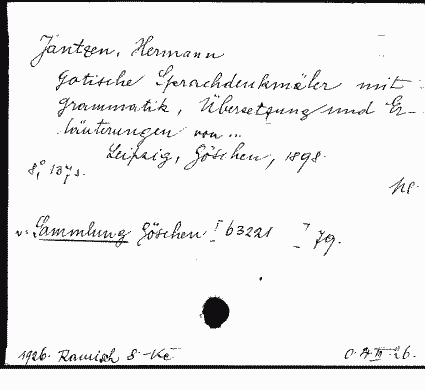 Jantzen, Hermann
Gotische Sprachdenkmäler mit
Grammatik, Übersetzung und Er-
läuterungen von ...
Leipzig, Göschen, 1898.
8,°
v: Sammlung Göschen I 63221 I 79.
1926. 8.
O. A III 26.